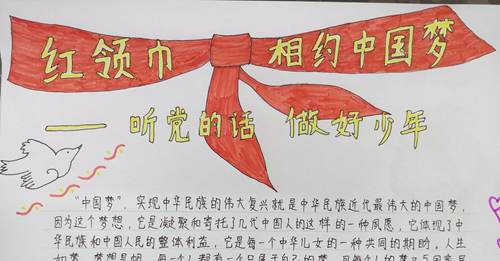 红领巾 相约中国梦
—— 听党的话 做好少年
“中国梦”，实现中华民族的伟大复兴就是中华民族近代最伟大的中国梦，
因为这个梦想，它是凝聚和寄托了几代中国人的这样的一种夙愿，它体现了中
华民族和中国人民的整体利益，它是每一个中华儿女的一种共同的期盼。人生
如梦，梦想是烟，每一个人都有一个只属于自己的梦，